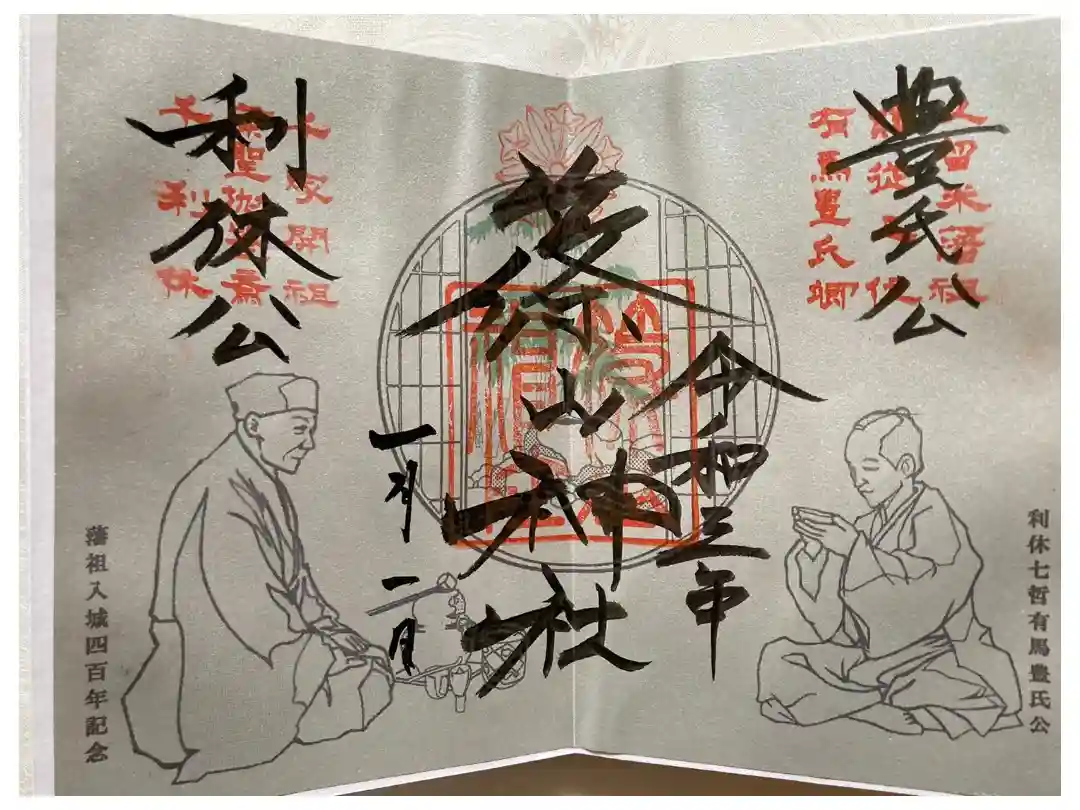 豊氏公
久留米藩祖
有馬豊氏卿
利休七哲有馬豊氏公
令和三年
篠山神社
一月一日
利休公
千家開祖
千利休
藩祖入城四百年記念